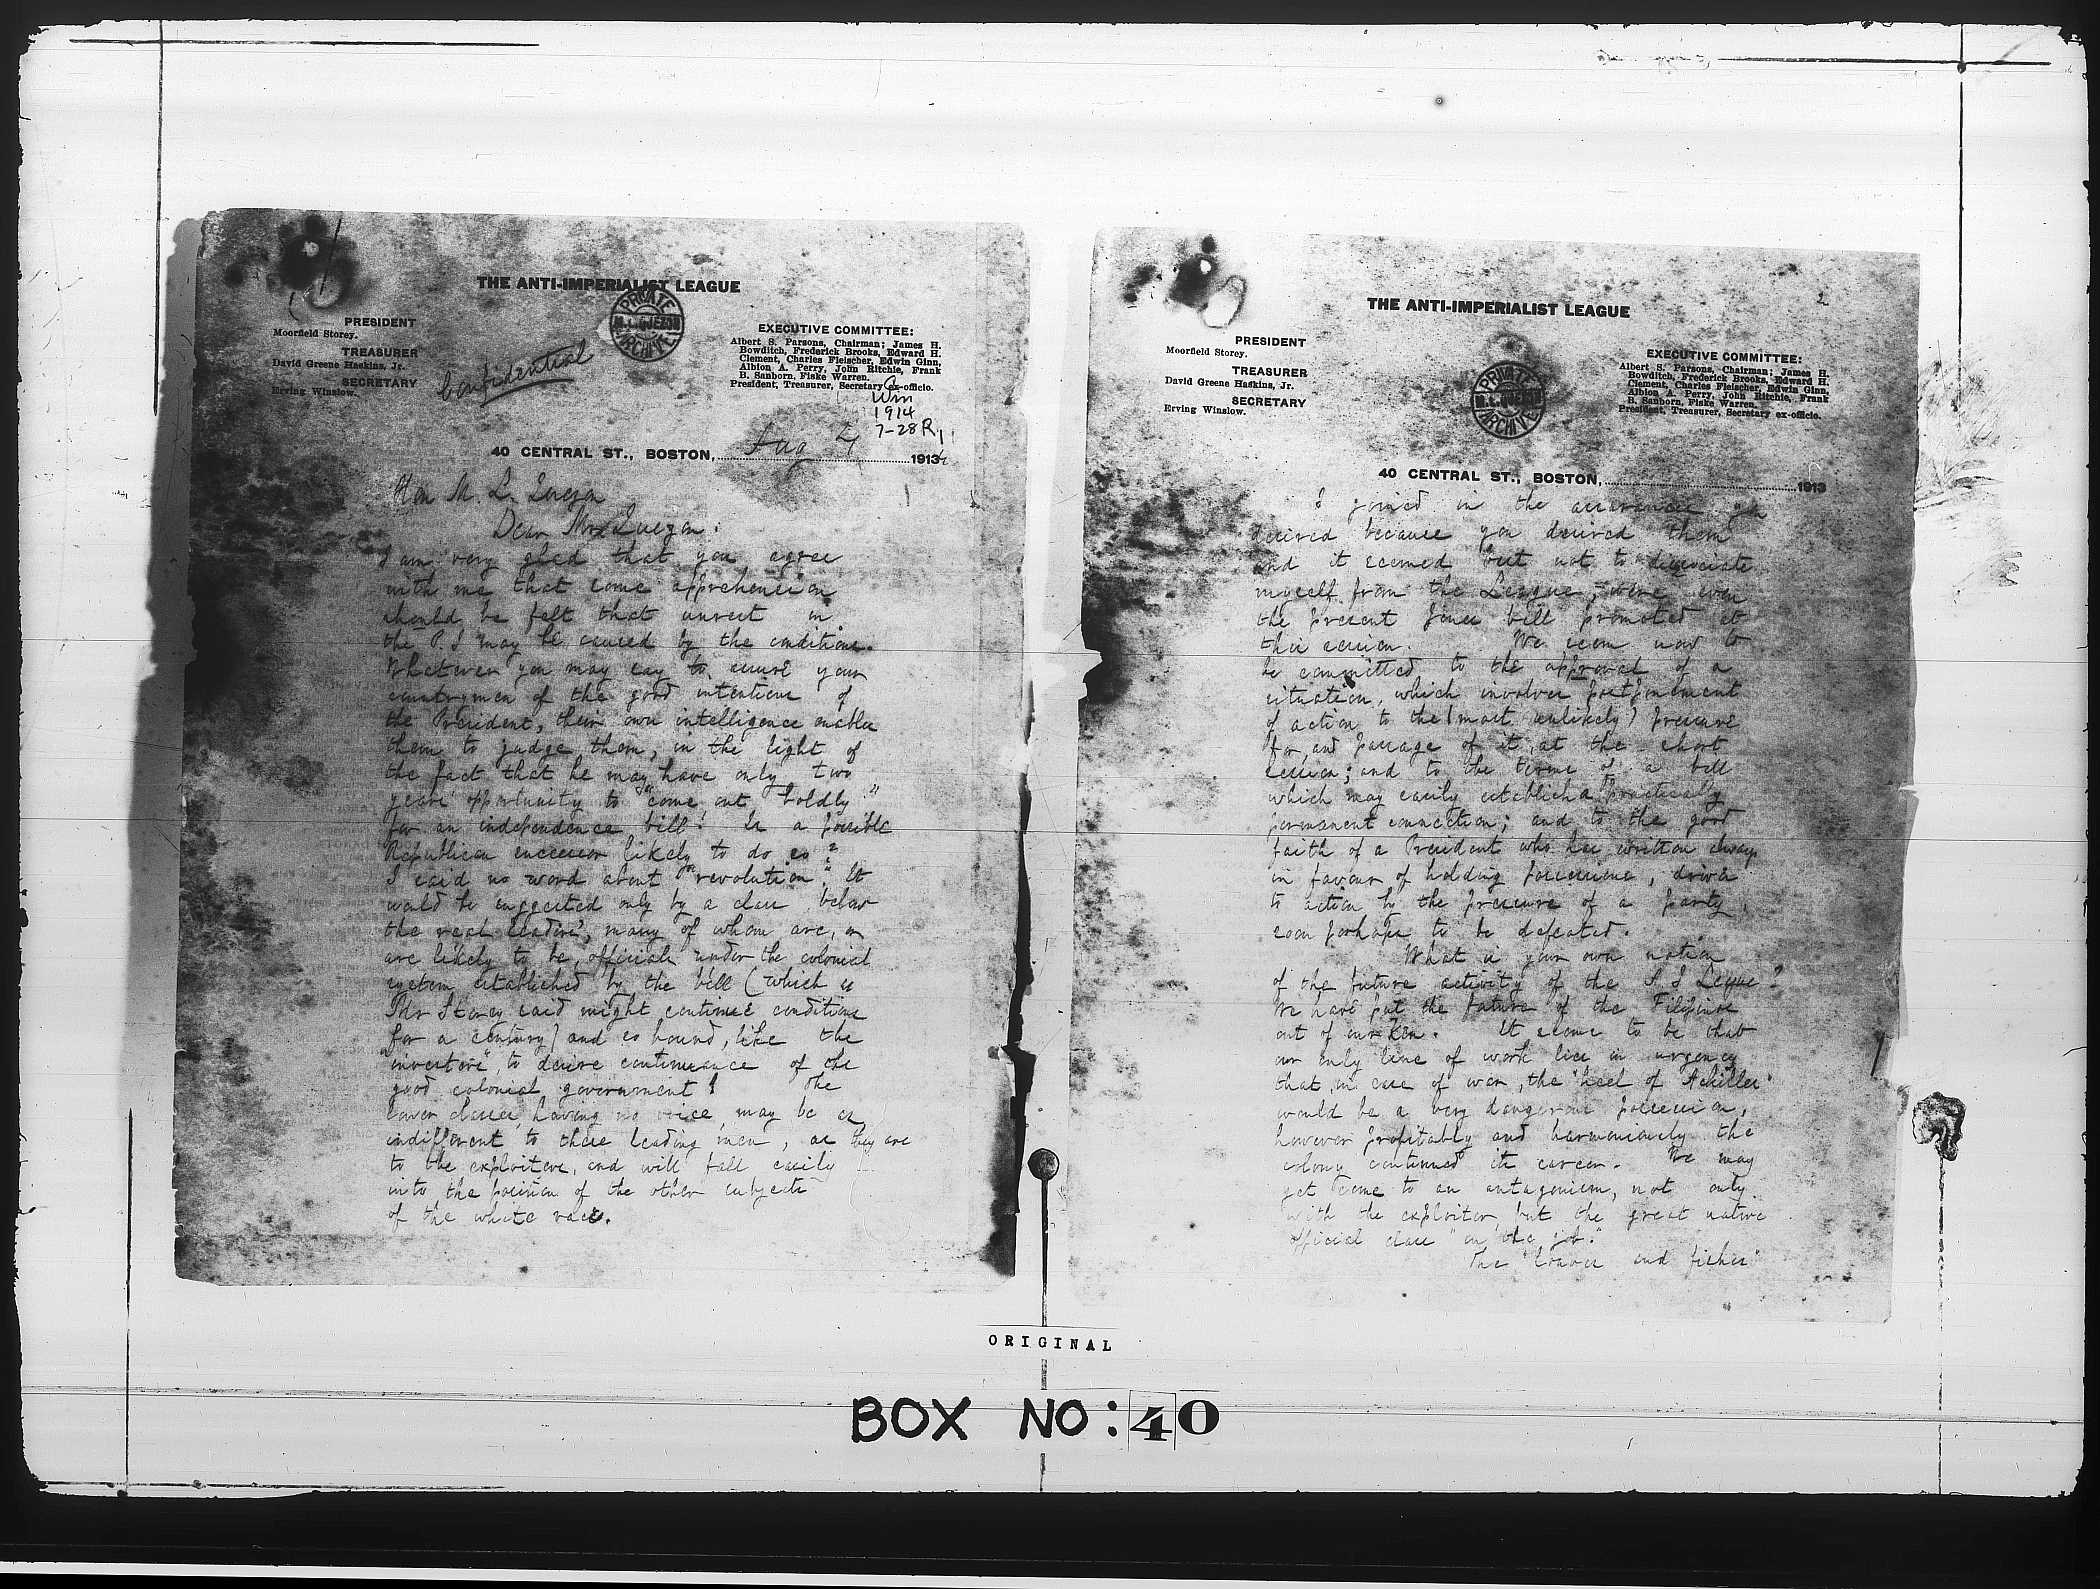 THE ANTI-IMPERIALIST LEAGUE
PRIVATE
M. L. QUEZON
ARCHIVE
PRESIDENT
Moorfield Storey.
TREASURER
David Greene Haskins, Jr.
SECRETARY
Erving Winslow.
Confidential
EXECUTIVE COMMITTEE:
Albert S. Parsons, Chairman; James H.
Bowditch, Frederick Brooks, Edward H.
Clement, Charles Fleischer, Edwin Ginn,
Albion A. Perry, John Ritchie, Frank
B. Sanborn, Fiske Warren.
President, Treasurer, Secretary ex-officio.
1914
7-28 R
40 CENTRAL ST., BOSTON, Aug 4 1914
Hon M. L. Quezon
Dear Mr. Quezon:
I am very glad that you agree
with me that some apprehension
should be felt that unrest in
the P. I may be caused by the conditions.
Whatever you may say to assure your
countrymen of the good intentions of
the President, their own intelligence enables
them to judge them, in the light of
the fact that he may have only two
years' opportunity to "come out boldly"
for an independence bill! Is a possible
Republican successor likely to do so?
I said no word about "revolution". It
would be suggested only by a class below
the real leaders, many of whom are, or
are likely to be, officials under the colonial
system established by the bill (which as
Mr Storey said might continue conditions
for a century) and so bound, like the
"investors", to desire continuance of the
good colonial government! The
lower classes, having no voice, may be as
indifferent to these leading men, as they are
to the exploiters, and will fall easily
into the position of the other subjects
of the white race.
THE ANTI-IMPERIALIST LEAGUE
2
PRESIDENT
Moorfield Storey.
TREASURER
David Greene Haskins, Jr.
SECRETARY
Erving Winslow.
PRIVATE
M. L. QUEZON
ARCHIVE
EXECUTIVE COMMITTEE:
Albert S. Parsons, Chairman; James H.
Bowditch, Frederick Brooks, Edward H.
Clement, Charles Fleischer, Edwin Ginn,
Albion A. Perry, John Ritchie, Frank
B. Sanborn, Fiske Warren.
President, Treasurer, Secretary ex-officio.
40 CENTRAL ST., BOSTON, 1913
I joined in the assurances you
desired because you desired them
and it seemed best not to dissociate
myself from the League, were even
the present Jones bill promoted at
this session. We seem now to
be committed to the approval of a
situation, which involves postponement
of action to the (most unlikely) pressure
for, and passage of it, at the short
session; and to the terms of a bill
which may easily establish a practically
permanent connection; and to the good
faith of a President who has written always
in favour of holding possessions, driven
to action by the pressure of a party,
soon perhaps to be defeated.
What is your own notion
of the future activity of the A. I League?
We have put the future of the Filipinos
out of our ken. It seems to be that
our only line of work lies in urgency
that, in case of war, the "heel of Achilles"
would be a very dangerous possession,
however profitably and harmoniously the
colony continued its career. We may
yet come to an antagonism, not only
with the exploiter, but the great native
official class "on the job."
The "loaves and fishes"
ORIGINAL
BOX NO: 40